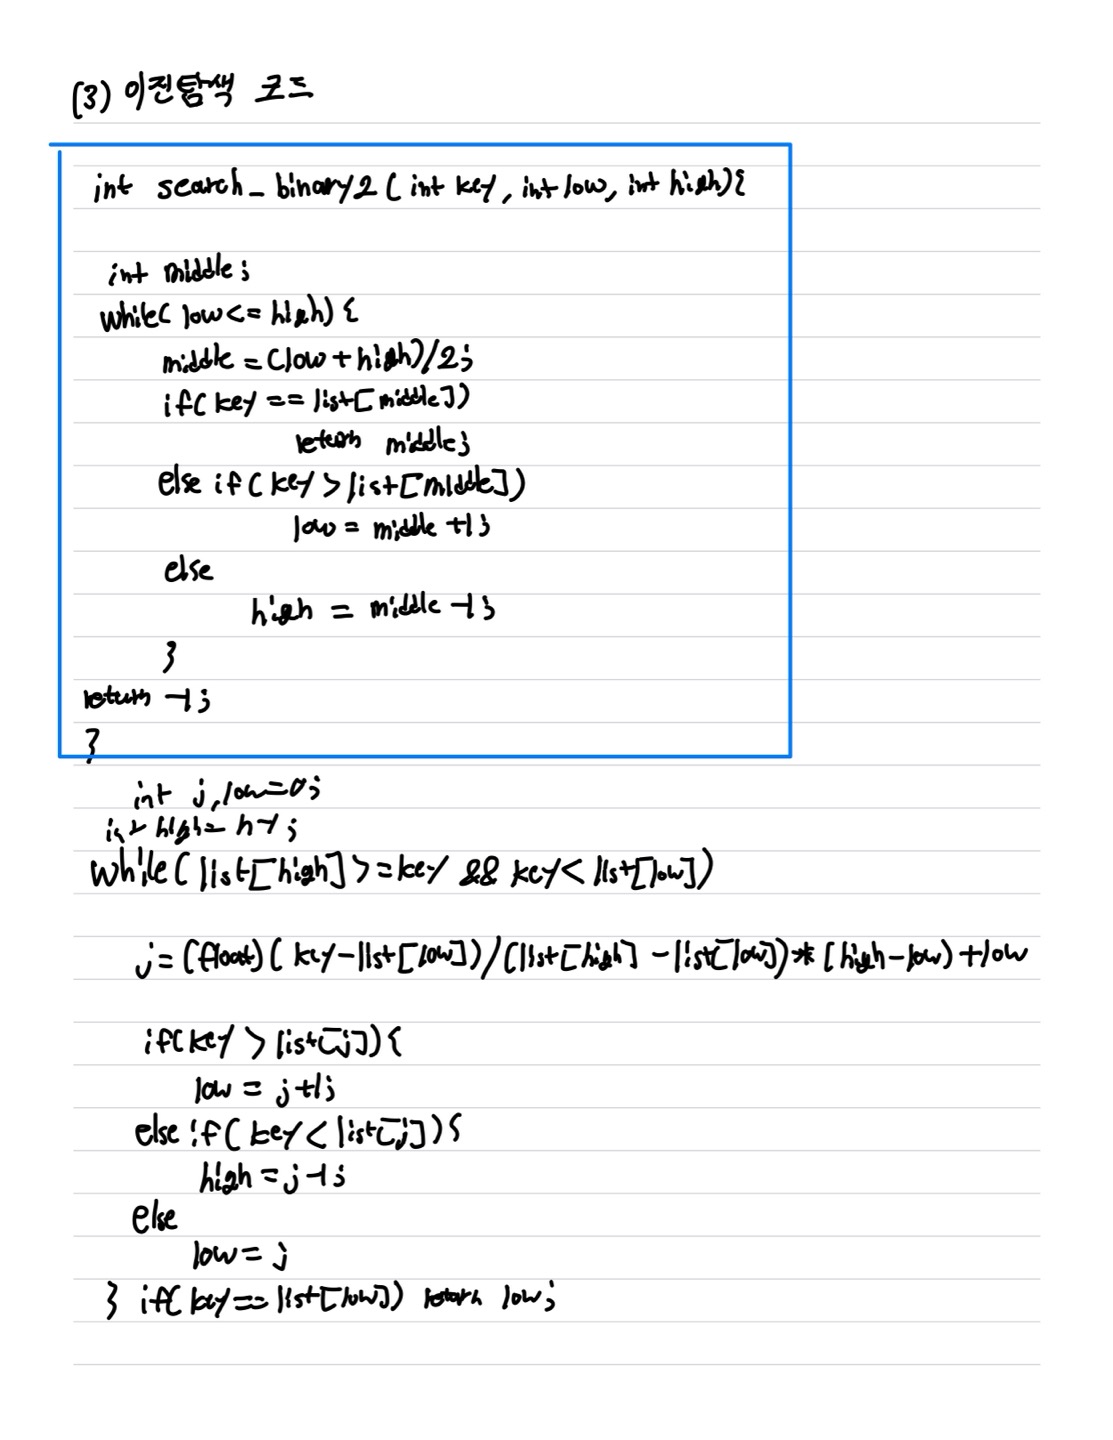 (3) 이진탐색 코드
int search_binary2 (int key, int low, int high){
int middle;
while( low <= high) {
middle = (low + high)/2;
if( key == list[middle])
return middle;
else if( key > list[middle])
low = middle +1;
else
high = middle -1;
}
return -1;
}
int j, low=0;
int high= n-1;
while( list[high] >= key && key < list[low])
j = (float)( key - list[low]) / (list[high] - list[low]) * (high - low) + low
if( key > list[j]){
low = j+1;
else if( key < list[j]){
high = j-1;
else
low = j
} if( key == list[low]) return low;